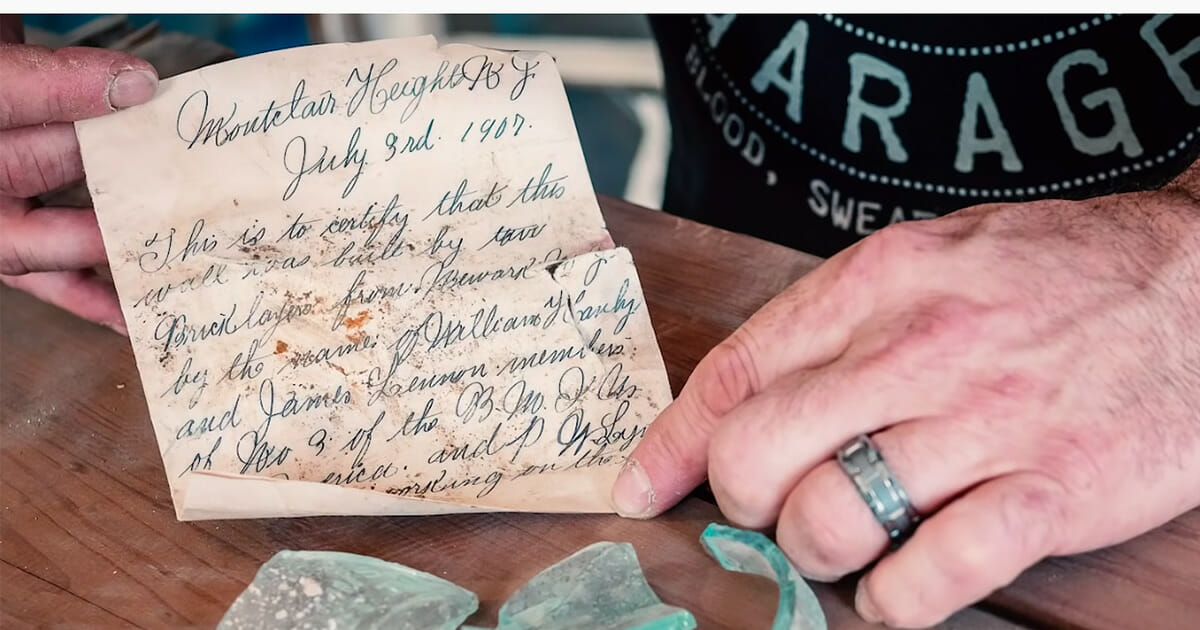 Montclair Heights N J
July 3rd. 1907.
This is to certify that this
wall was built by two
Bricklayers from Newark N J
by the names of William Hanly
and James Lennon members
of No 3 of the B. M. I U
erica. and P
working on the
GARAGE
BLOOD, SWEA